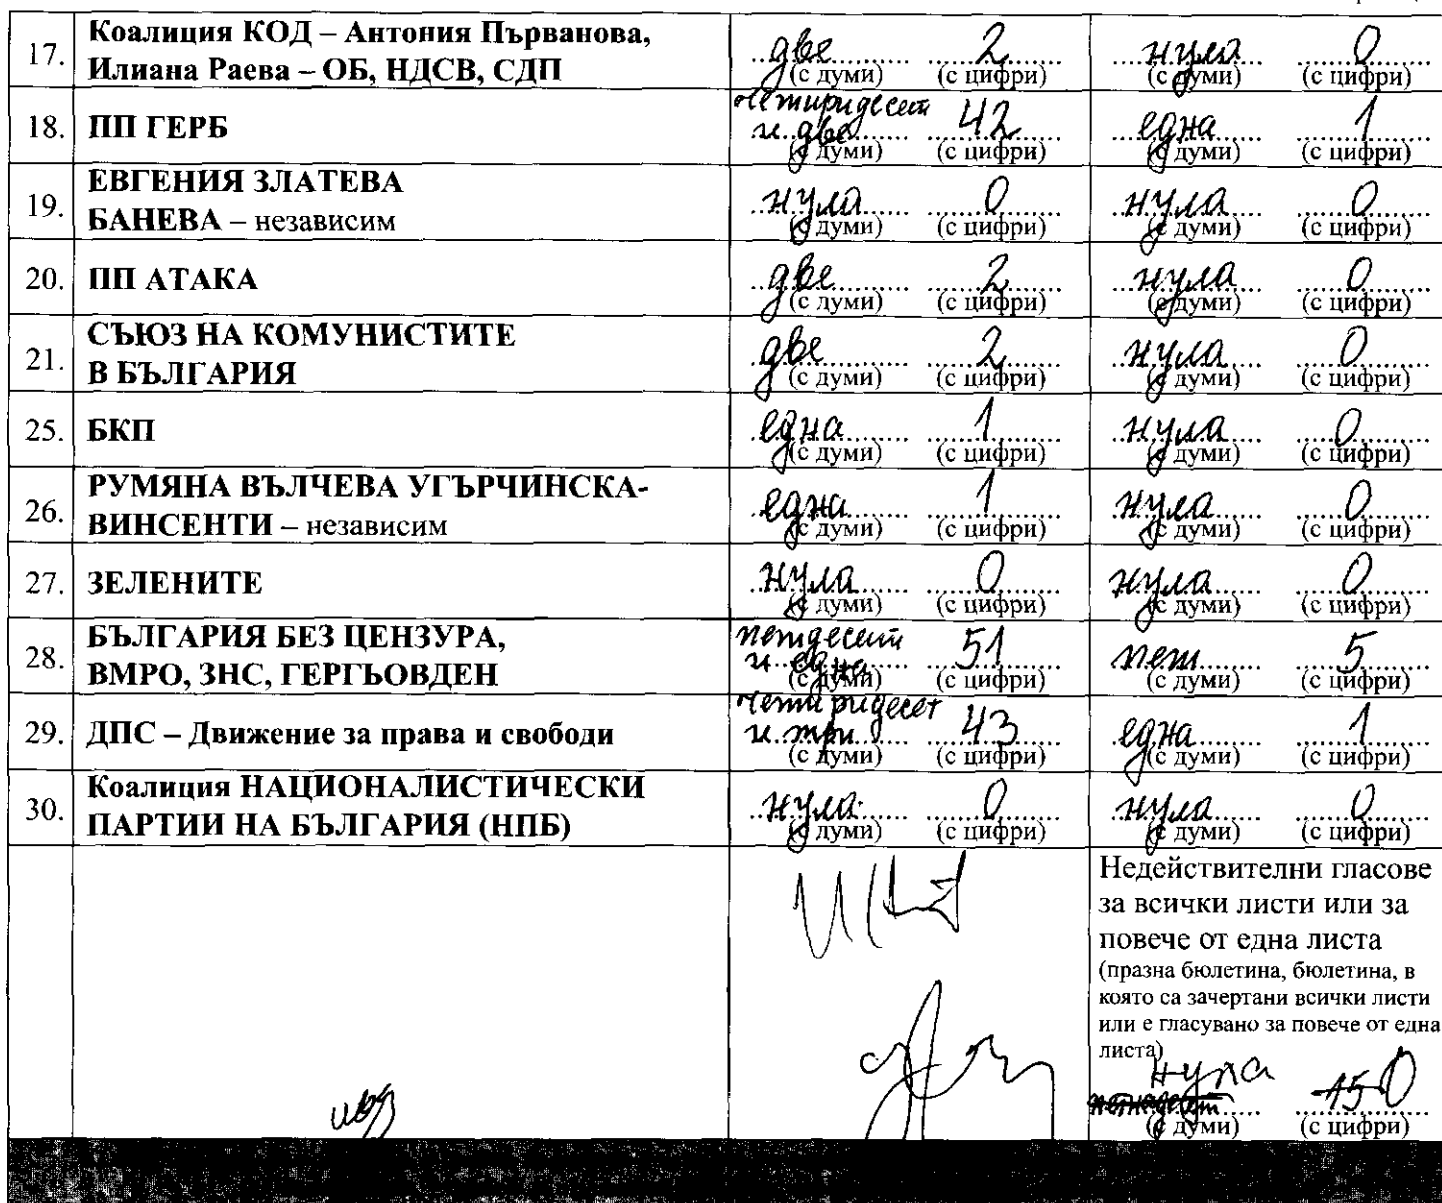 17. Коалиция КОД – Антония Първанова, Илиана Раева – ОБ, НДСВ, СДП две 2 нула 0
(с думи) (с цифри) (с думи) (с цифри)
18. ПП ГЕРБ четиридесет и две 42 една 1
(с думи) (с цифри) (с думи) (с цифри)
19. ЕВГЕНИЯ ЗЛАТЕВА БАНЕВА – независим нула 0 нула 0
(с думи) (с цифри) (с думи) (с цифри)
20. ПП АТАКА две 2 нула 0
(с думи) (с цифри) (с думи) (с цифри)
21. СЪЮЗ НА КОМУНИСТИТЕ В БЪЛГАРИЯ две 2 нула 0
(с думи) (с цифри) (с думи) (с цифри)
25. БКП една 1 нула 0
(с думи) (с цифри) (с думи) (с цифри)
26. РУМЯНА ВЪЛЧЕВА УГЪРЧИНСКА-ВИНСЕНТИ – независим една 1 нула 0
(с думи) (с цифри) (с думи) (с цифри)
27. ЗЕЛЕНИТЕ нула 0 нула 0
(с думи) (с цифри) (с думи) (с цифри)
28. БЪЛГАРИЯ БЕЗ ЦЕНЗУРА, ВМРО, ЗНС, ГЕРГЬОВДЕН петдесет и една 51 пет 5
(с думи) (с цифри) (с думи) (с цифри)
29. ДПС – Движение за права и свободи четиридесет и три 43 една 1
(с думи) (с цифри) (с думи) (с цифри)
30. Коалиция НАЦИОНАЛИСТИЧЕСКИ ПАРТИИ НА БЪЛГАРИЯ (НПБ) нула 0 нула 0
(с думи) (с цифри) (с думи) (с цифри)
Недействителни гласове
за всички листи или за
повече от една листа
(празна бюлетина, бюлетина, в
която са зачертани всички листи
или е гласувано за повече от една
листа)
нула
петнадесет 15 0
(с думи) (с цифри)